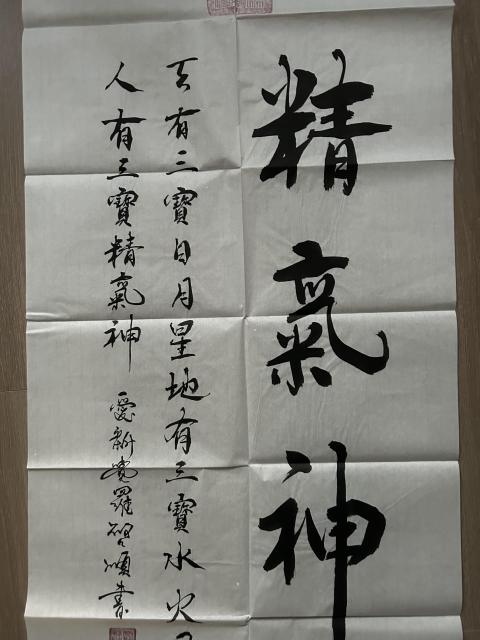 精氣神
天有三寶日月星地有三寶水火
人有三寶精氣神 愛新覺羅啓頌書